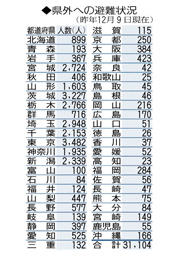 ◆県外への避難状況
(昨年12月9日現在)
都道府県 人数(人) 滋賀 115
北海道 899 京都 250
青森 193 大阪 384
岩手 367 兵庫 423
宮城 2,724 奈良 42
秋田 406 和歌山 25
山形 1,603 鳥取 53
茨城 3,227 島根 46
栃木 2,766 岡山 216
群馬 716 広島 170
埼玉 2,948 山口 51
千葉 2,153 徳島 26
東京 3,482 香川 37
神奈川 1,935 愛媛 52
新潟 2,339 高知 23
富山 100 福岡 284
石川 84 佐賀 56
福井 124 長崎 47
山梨 447 熊本 75
長野 577 大分 84
岐阜 139 宮崎 149
静岡 397 鹿児島 55
愛知 525 沖縄 166
三重 132 合計 31,104